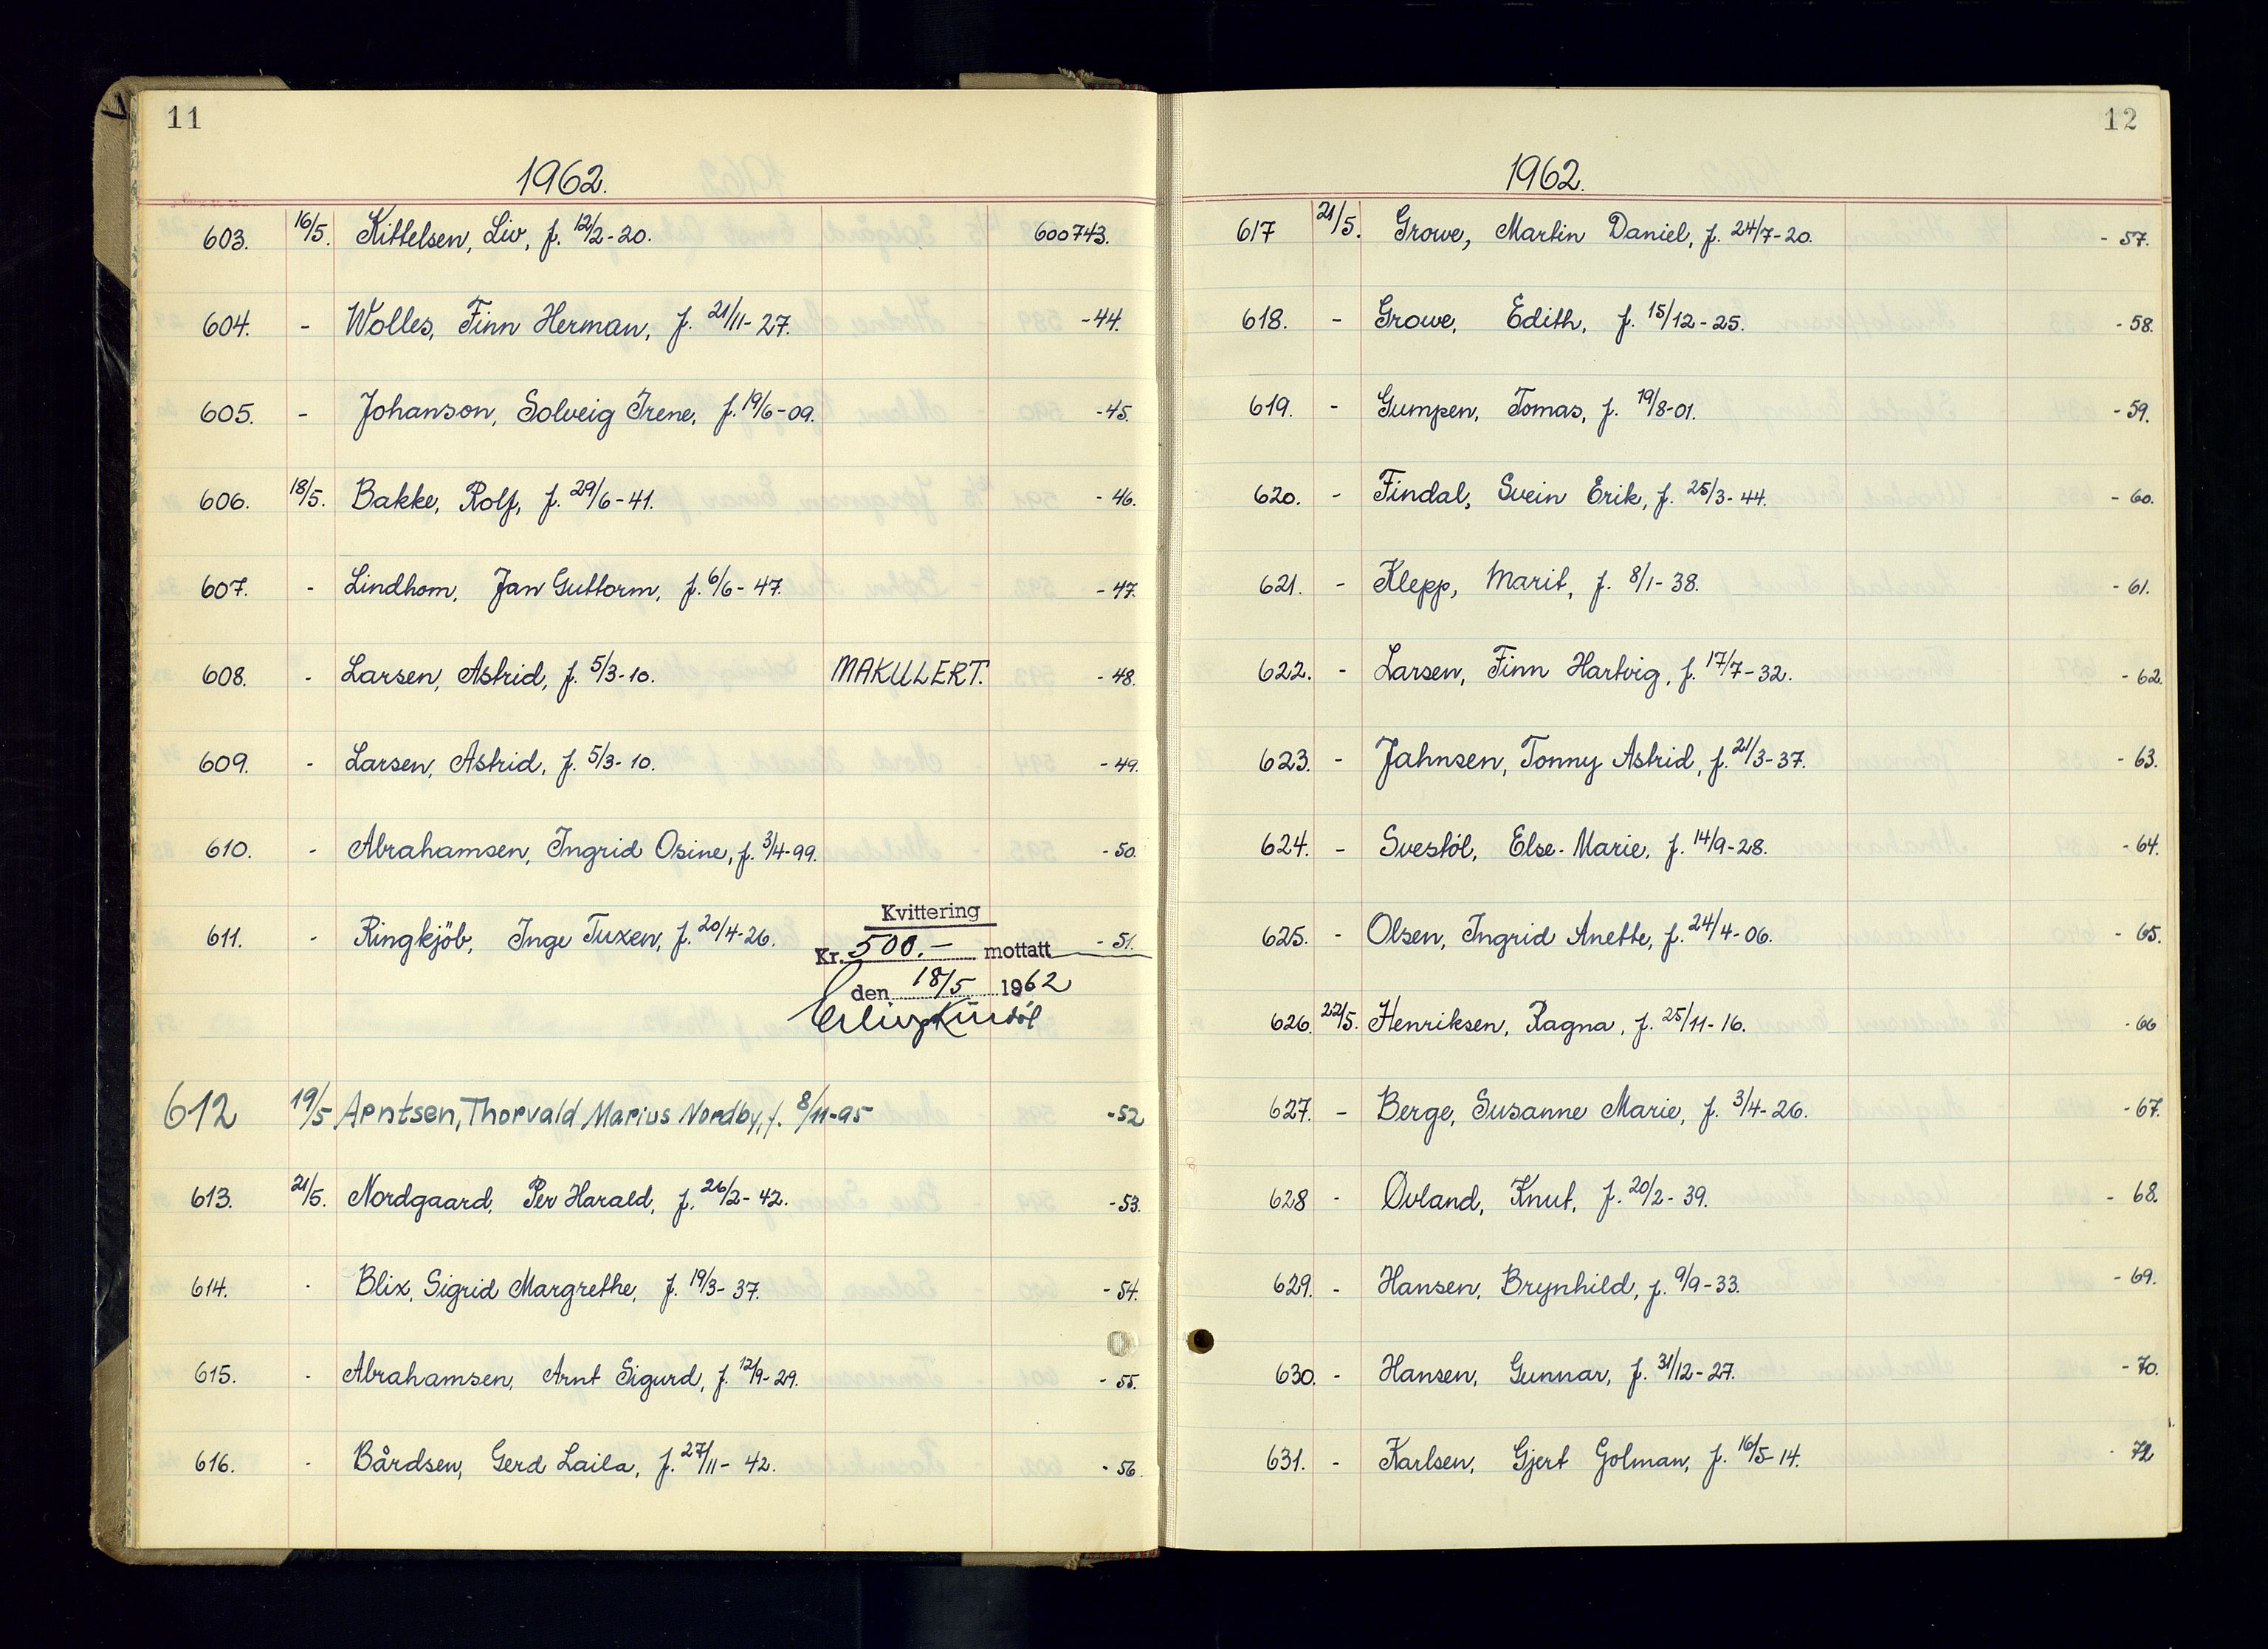 11
1962.
603. 16/5. Kittelsen, Liv, f. 12/2-20. 600743.
604. - Wolles, Finn Herman, f. 21/11-27. -44.
605. - Johanson, Solveig Irene, f. 19/6-09. -45.
606. 18/5. Bakke, Rolf, f. 29/6-41. -46.
607. - Lindhom, Jan Guttorm, f. 6/6-47. -47.
608. - Larsen, Astrid, f. 5/3-10. MAKULERT. -48.
609. - Larsen, Astrid, f. 5/3-10. -49.
610. - Abrahamsen, Ingrid Osine, f. 3/4-99. -50.
Kvittering
611. - Ringkjöb, Inge Tuxen, f. 20/4-26. Kr. 500.- mottatt -51.
den 18/5 1962
Erling
612 19/5 Arntsen, Thorvald Marius Nordby, f. 8/11-95 -52
613. 21/5. Nordgaard, Per Harald, f. 26/2-42. -53.
614. - Blix, Sigrid Margrethe, f. 19/3-37. -54.
615. - Abrahamsen, Arnt Sigurd, f. 12/9-29. -55.
616. - Bårdsen, Gerd Laila, f. 27/11-42. -56.
12
1962.
617 21/5. Growe, Martin Daniel, f. 24/7-20. -57.
618. - Growe, Edith, f. 15/12-25. -58.
619. - Gumpen, Tomas, f. 19/8-01. -59.
620. - Findal, Svein Erik, f. 25/3-44. -60.
621. - Klepp, Marit, f. 8/1-38. -61.
622. - Larsen, Finn Hartvig, f. 17/7-32. -62.
623. - Jahnsen, Tonny Astrid, f. 21/3-37. -63.
624. - Svestöl, Else-Marie, f. 14/9-28. -64.
625. - Olsen, Ingrid Anette, f. 24/4-06. -65.
626. 22/5. Henriksen, Ragna, f. 25/11-16. -66
627. - Berge, Susanne Marie, f. 3/4-26. -67.
628 - Övland, Knut, f. 20/2-39. -68.
629. - Hansen, Brynhild, f. 9/9-33. -69.
630. - Hansen, Gunnar, f. 31/12-27. -70.
631. - Karlsen, Gjert Golman, f. 16/5-14.